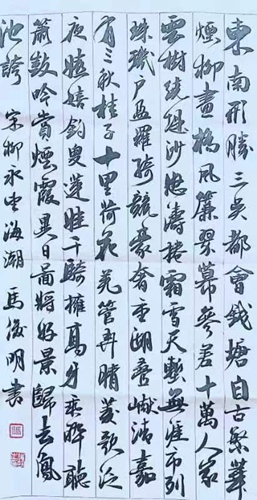 東南形勝三吳都會錢塘自古繁華
煙柳畫橋風簾翠幕參差十萬人家
雲樹繞堤沙怒濤捲霜雪天塹無涯市列
珠璣戶盈羅綺競豪奢重湖疊巘清嘉
有三秋桂子十里荷花羌管弄晴菱歌泛
夜嬉嬉釣叟蓮娃千騎擁高牙乘醉聽
簫鼓吟賞煙霞異日圖將好景歸去鳳
池誇 宋柳永望海潮 馬俊明書